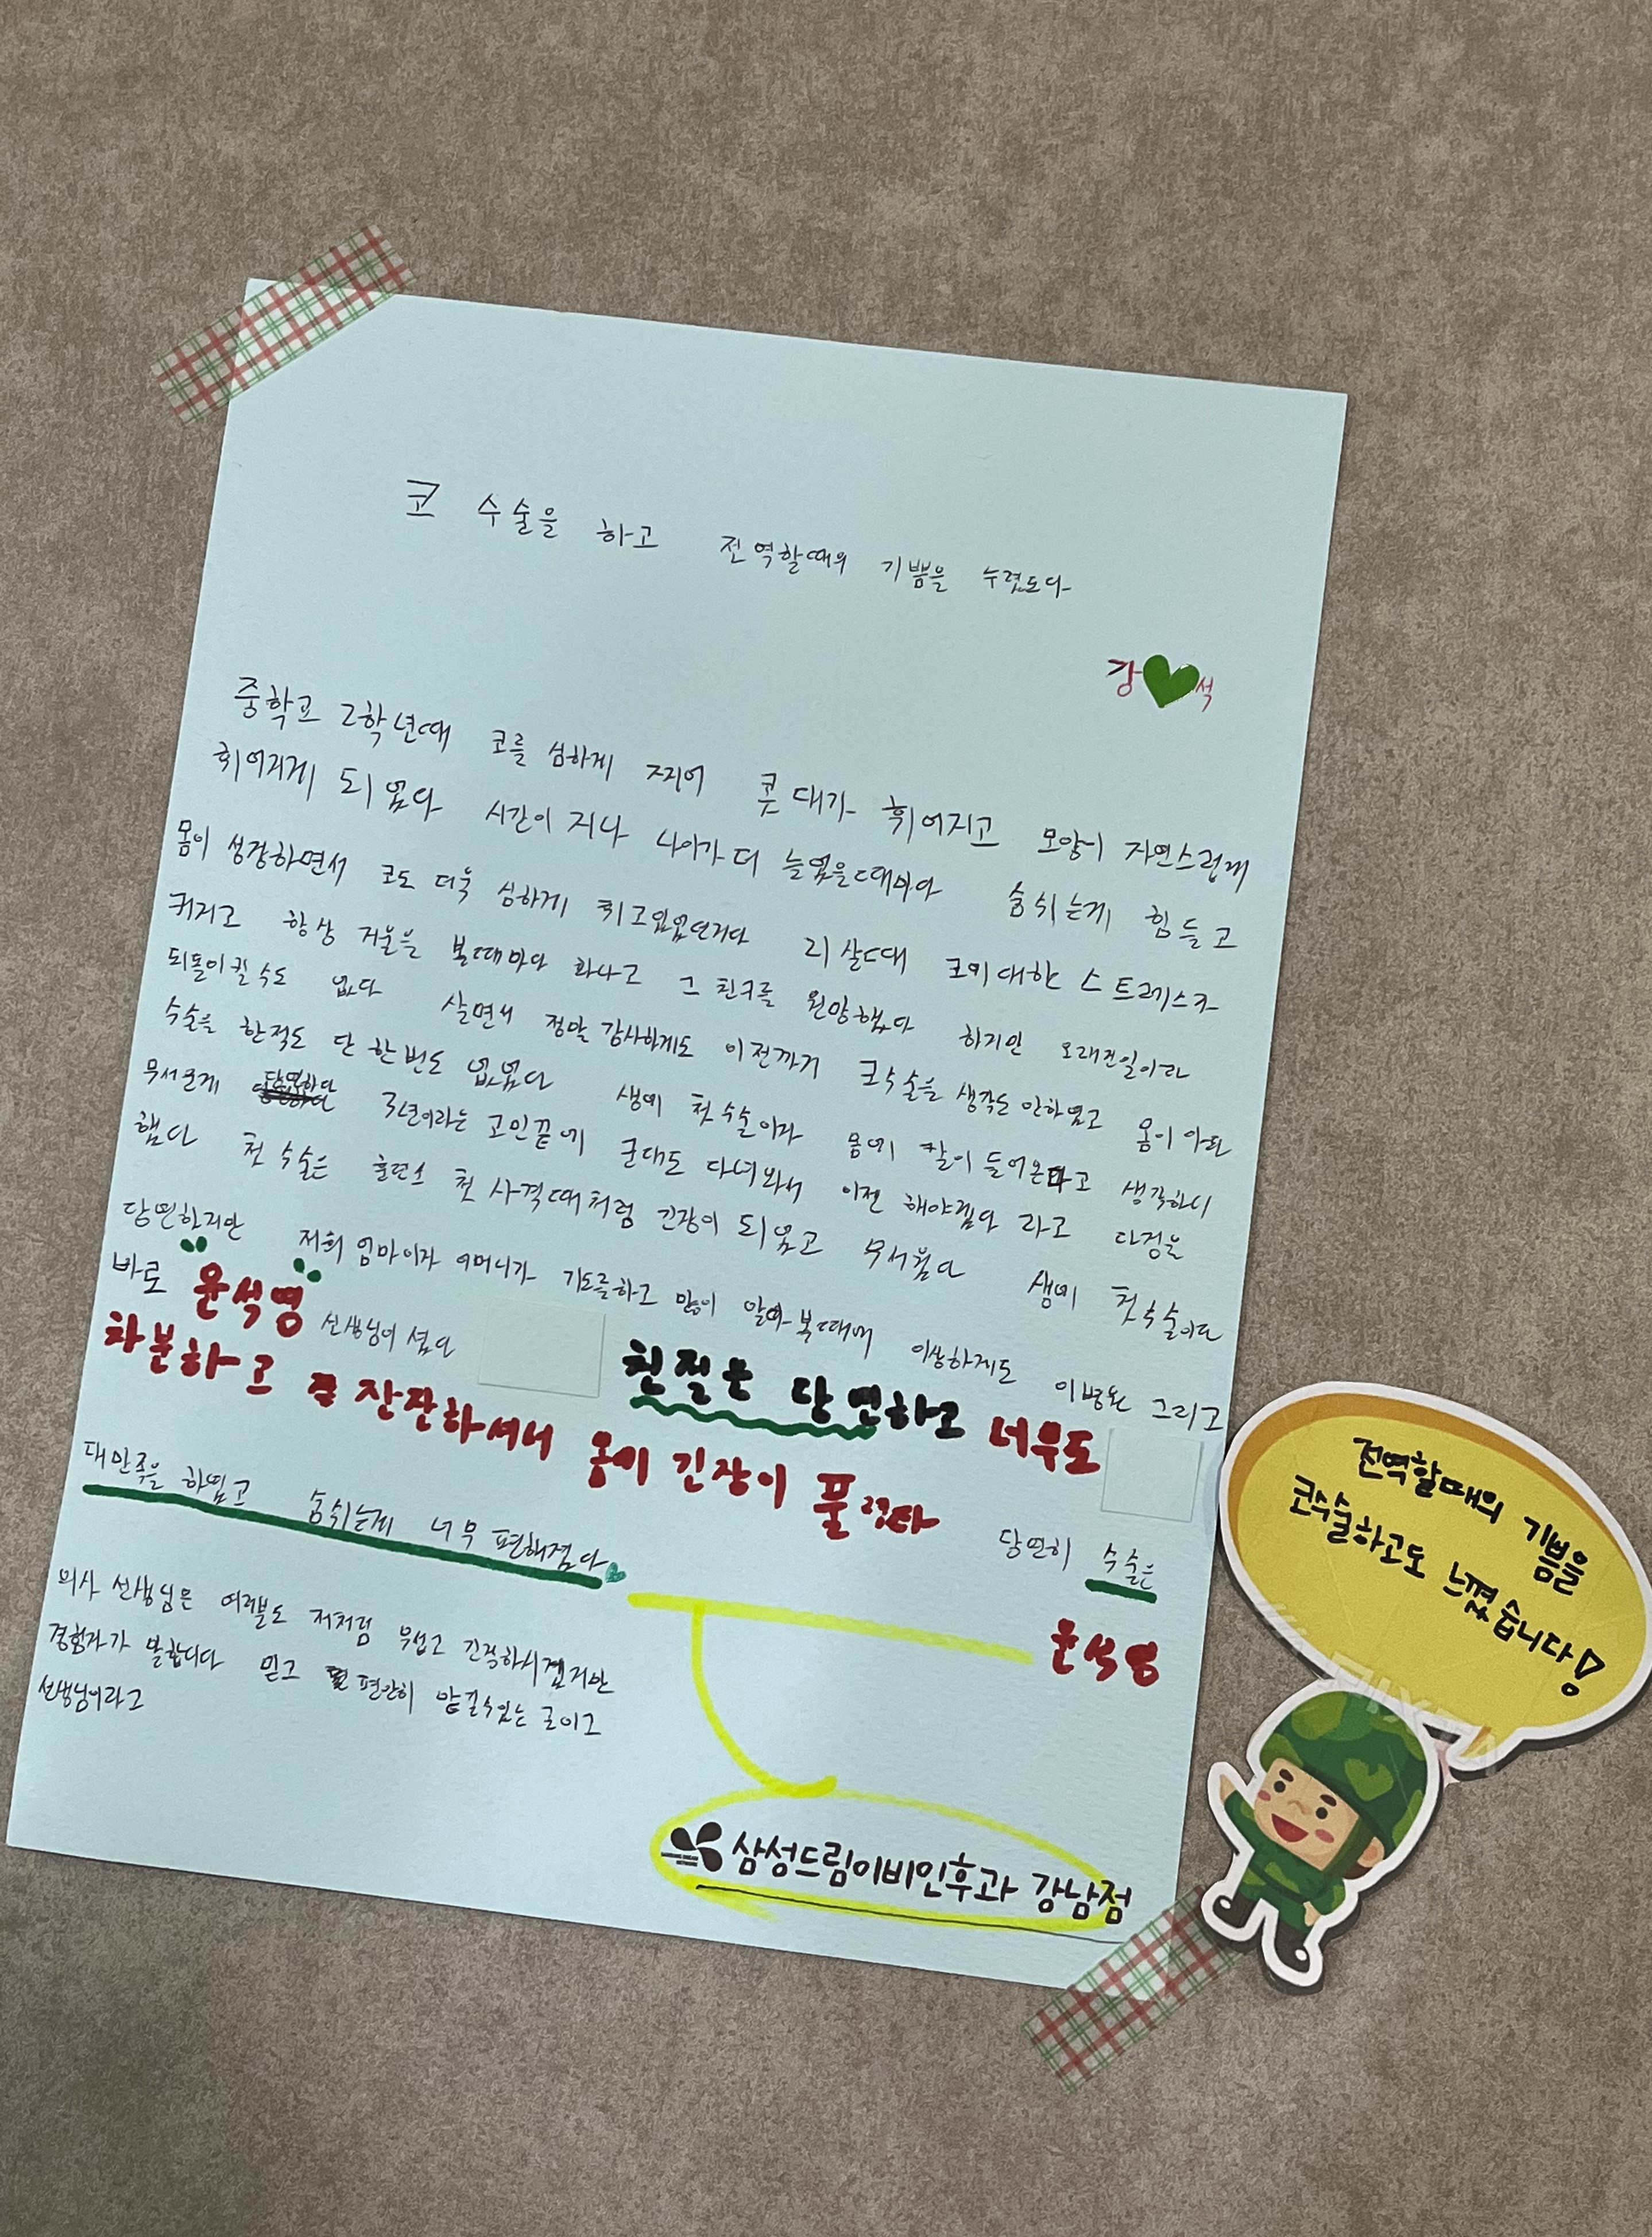 코 수술을 하고 전역할때의 기쁨을 누렸도다
강 석
중학교 2학년때 코를 심하게 찌어 콧대가 휘어지고 모양이 자연스럽게
휘어지게 되었다 시간이 지나 나이가 더 늘었을때마다 숨쉬는게 힘들고
몸이 성장하면서 코도 더욱 심하게 휘고있었던거다 21살때 코에대한 스트레스가
커지고 항상 거울을 볼때마다 화나고 그 친구를 원망했다 하지만 오래전일이라
되돌이킬수도 없다 살면서 정말 감사하게도 이전까지 코수술을 생각은 안하였고 몸이 아파
수술을 한적도 단 한번도 없었다 생에 첫수술이라 몸에 칼이 들어온다고 생각하니
무서운게 당연하다 3년이라는 고민끝에 군대도 다녀와서 이젠 해야겠다 라고 다짐을
했다 첫 수술은 훈련소 첫 사격때처럼 긴장이 되었고 무서웠다 생에 첫수술이다
당연하지만 저희 엄마이자 어머니가 기도를하고 많이 알아볼때에 이상하게도 이병원 그리고
바로 윤석영 선생님이셨다 친절은 당연하고 너무도
차분하고 잔잔하셔서 몸에 긴장이 풀렸다 당연히 수술은
대만족을 하였고 숨쉬는게 너무 편해졌다
의사 선생님은 여러분도 저처럼 무섭고 긴장하시겠지만 윤석영
경험자가 말합니다 믿고 편안히 맡길수있는 곳이고
선생님이라고
삼성드림이비인후과 강남점
전역할때의 기쁨을
코수술하고도 느꼈습니다!